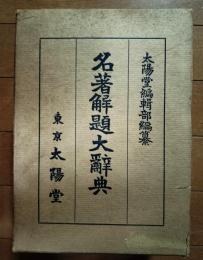 太陽堂編輯部編纂
名著解題大辭典
東京 太陽堂